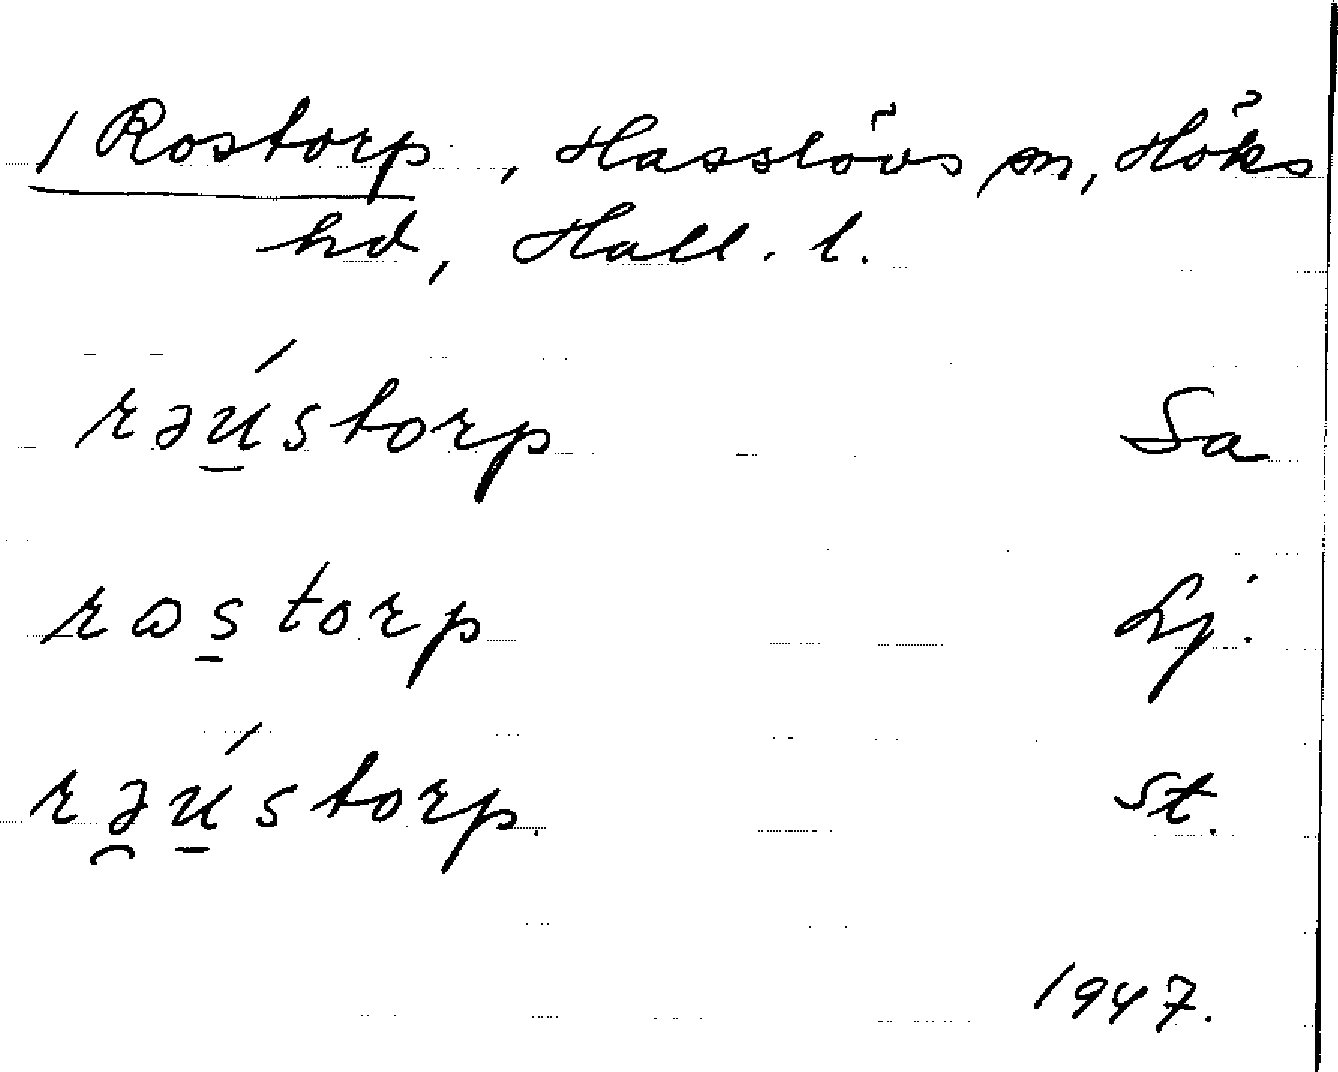 1 Rostorp, Hasslövs sn, Höks
hd, Hall. l.
rəú̱storp Sa
rɷs̱torp Lj.
rə̯ú̱storp. St.
1947.